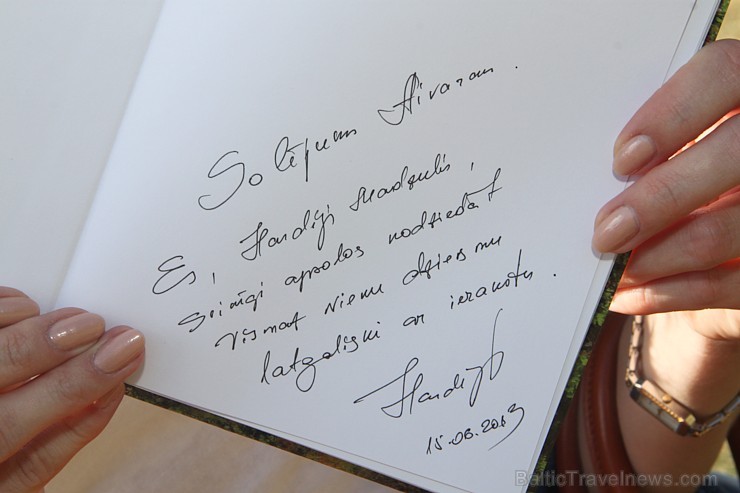 Solījums Aivaram.
Es, Hardijs
svinīgi apsolos nodziedāt
vismaz vienu dziesmu
latgaliski ar ierakstu.
15.08.2013
BalticTravelnews.com